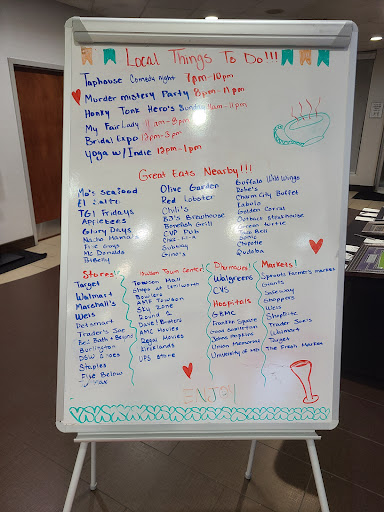 Local Things To Do!!!
Taphouse Comedy night 7pm-10pm
Murder mistery Party 8pm-11pm
Honky Tonk Hero's Sunday 11am-11pm
My Fair Lady 11am-8pm
Bridal Expo 12pm-3pm
Yoga w/Indie 12pm-1pm
Great Eats Nearby!!!
Mo's Seafood
El Salto
TGI Fridays
Applebees
Glory Days
Nacho Mama's
Five Guys
Mc Donalds
Olive Garden
Red Lobster
Chili's
BJ's Brewhouse
Bonefish Grill
CVP Pub
Chick-fil-A
Subway
Gino's
Buffalo Wild Wings
Charm City Buffet
Golden Corral
Outback Steakhouse
Green turtle
Red Rob
Sonic
Chipotle
Qudoba
Stores!
Target
Walmart
Marshall's
Weis
Petsmart
Trader's Joe
Bed Bath & Beyond
Burlington
DSW Shoes
Staples
Five Below
Towson Town Center!
Towson Mall
Shops at Kenilworth
Bowlero
AMF Towson
Sky Zone
Round 1
Dave & Busters
AMC Movies
Regal Movies
Kirklands
UPS Store
Pharmacy!
Walgreens
CVS
Hospitals
GBMC
Franklin Square
Good Samaritan
Johns Hopkins
Union Memorial
University of MD
Markets!
Sprouts Farmer's market
Giants
Safeway
Shoppers
Weis
ShopRite
Trader Joe's
Walmart
Target
The Fresh Market
ENJOY